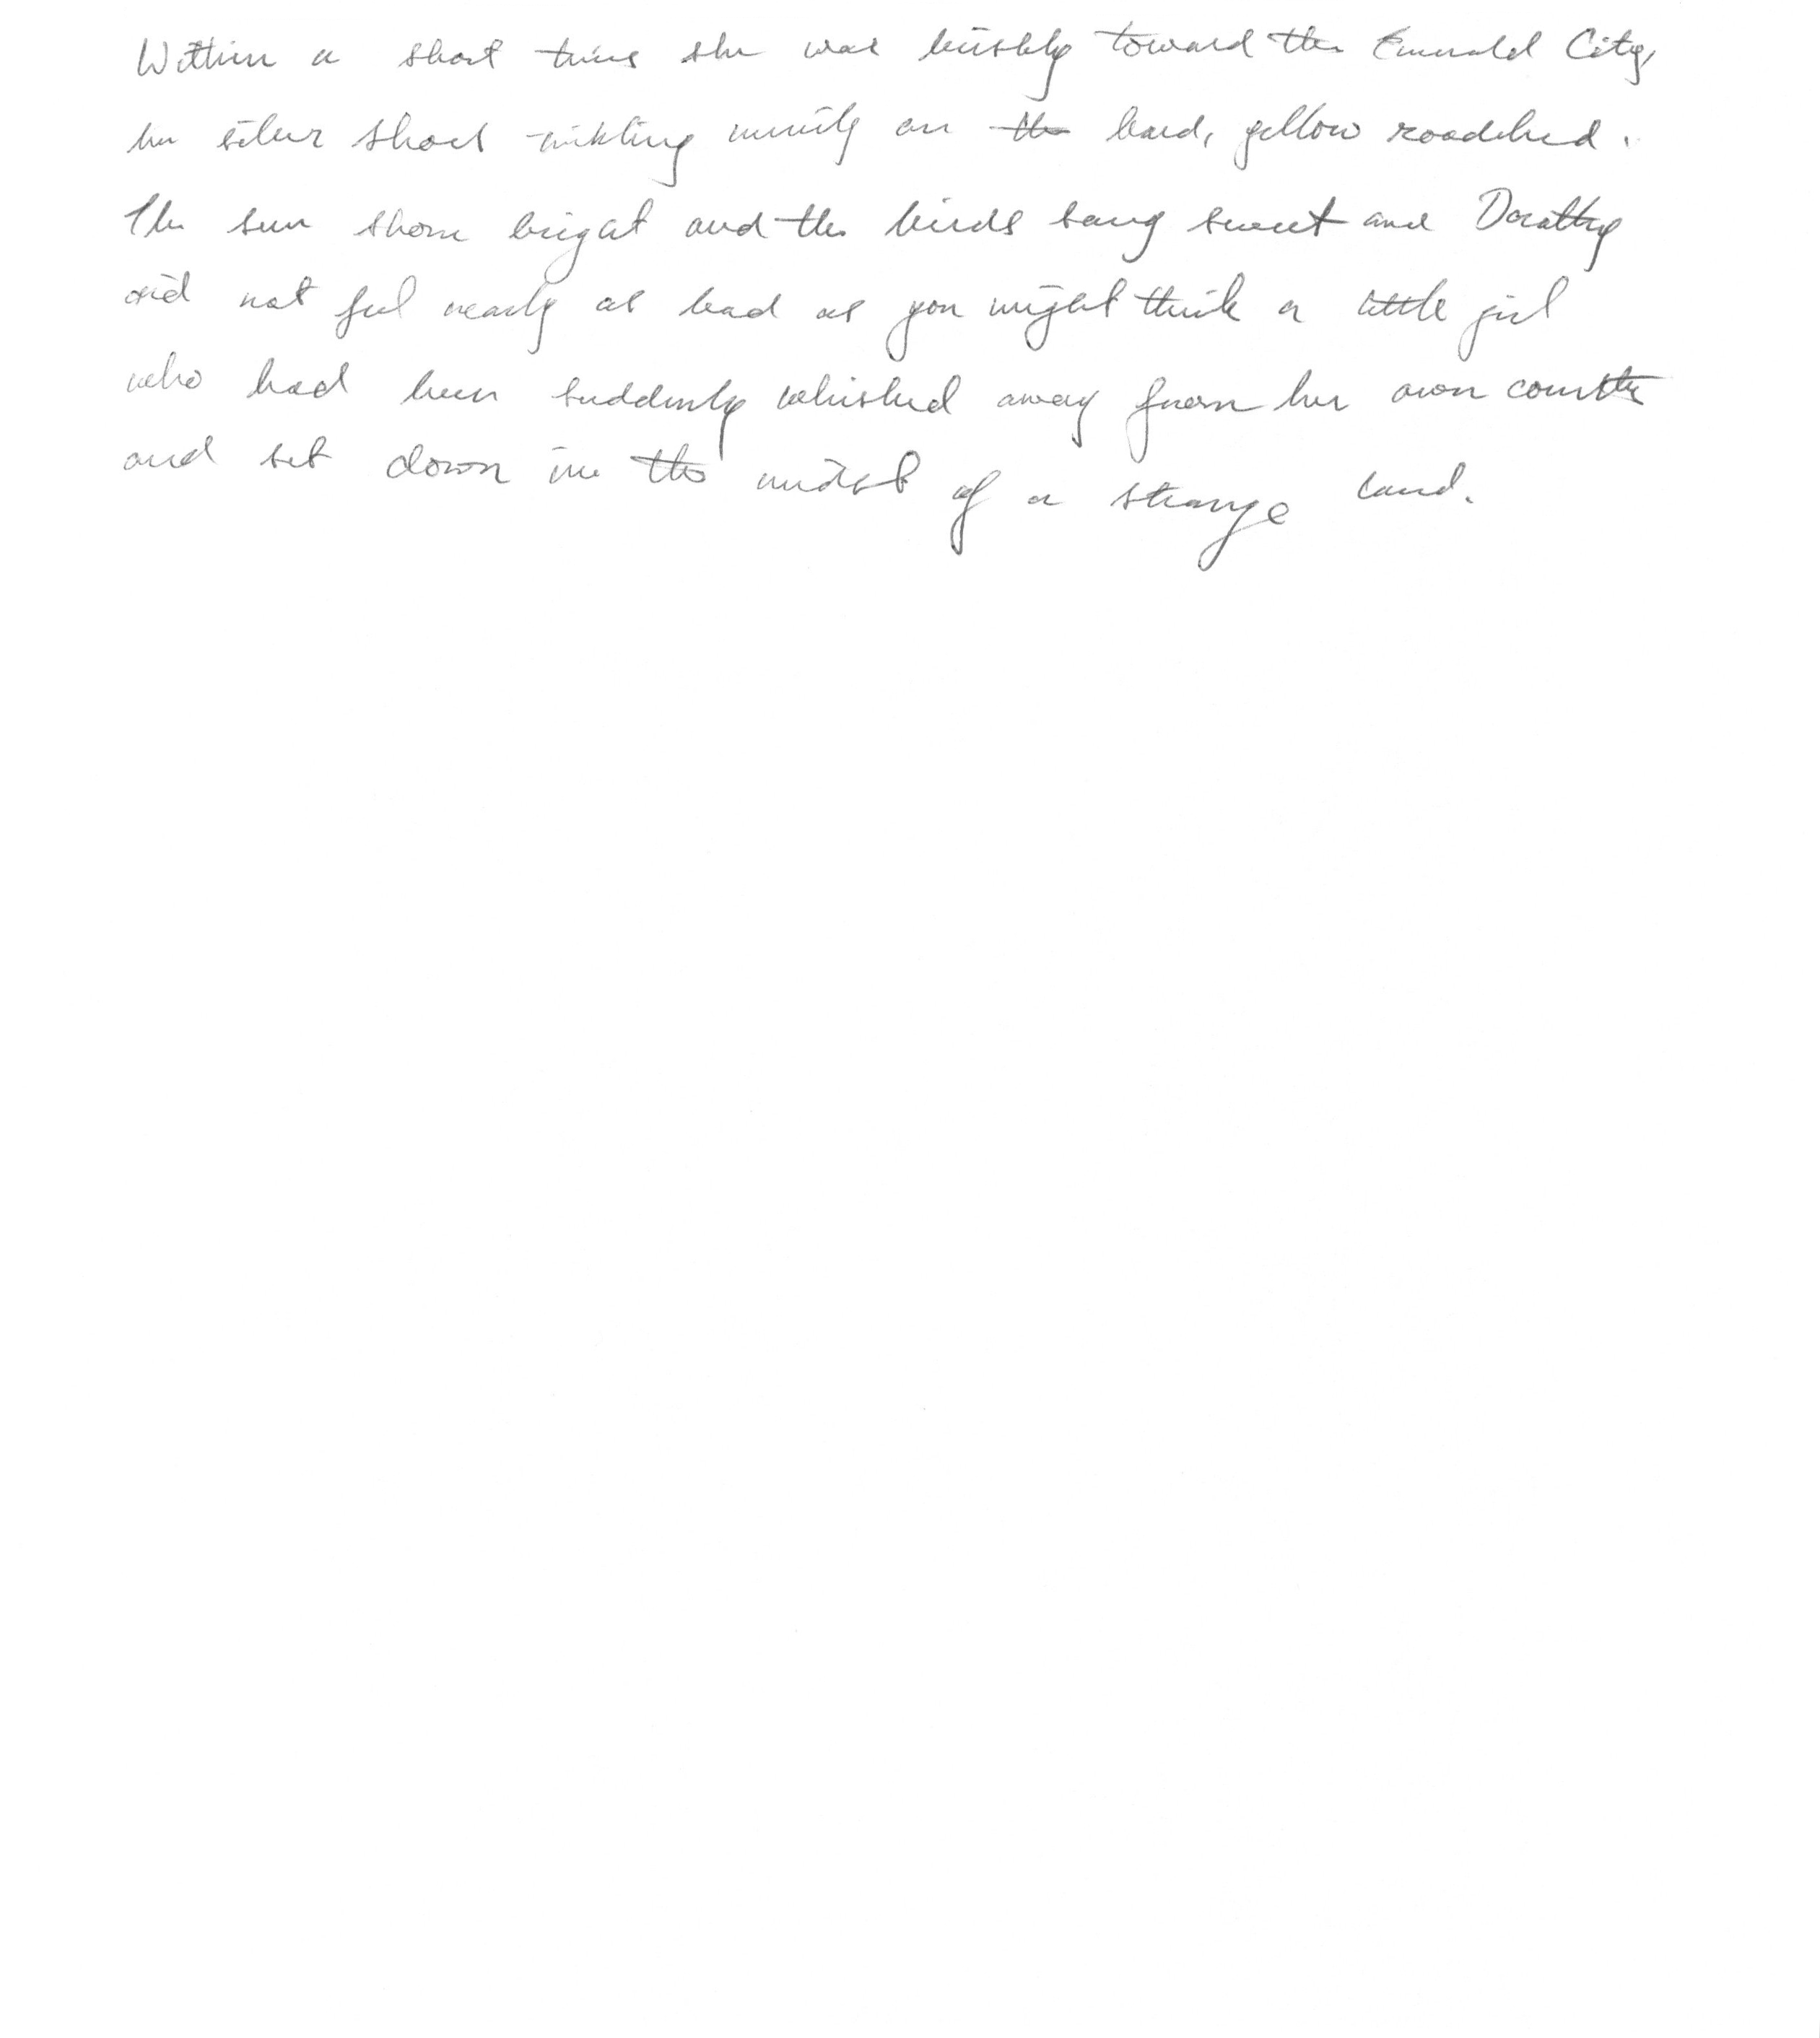 Within a short time she was briskly toward the Emerald City,
her silver shoes tinkling merrily on the hard, yellow roadbed.
The sun shone bright and the birds sang sweet and Dorothy
did not feel nearly as bad as you might think a little girl
who had been suddenly whisked away from her own country
and set down in the midst of a strange land.